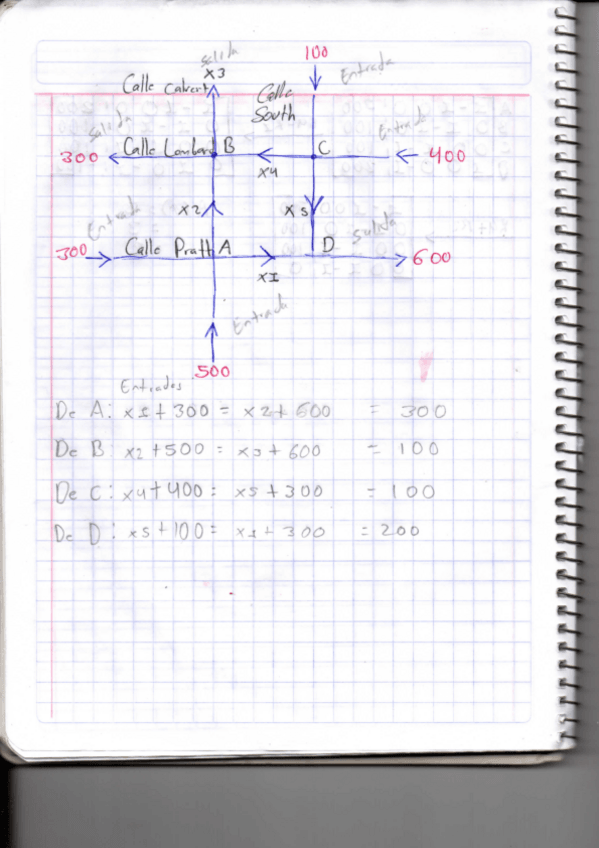 Salida
100
x3
Entrada
Calle Calvert
Calle
South
Salida
Entrada
300
Calle Lombard
B
C
400
x4
x2
x5
Entrada
Salida
300
Calle Pratt
A
D
600
x1
Entrada
500
Entrados
De A: x1 + 300 = x2 + 600 = 300
De B x2 + 500 = x3 + 600 = 100
De C: x4 + 400 = x5 + 300 = 100
De D: x5 + 100 = x1 + 300 = 200